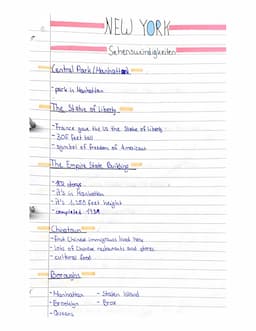 NEW YORK
Sehenswürdigkeiten
Central Park/Manhattan
- park in Manhattan
The Statue of Liberty
- France gave the US the Statue of Liberty
- 305 feet tall
- symbol of freedom of Americans
The Empire State Building
- 102 storys
- it's in Manhattan
- it's 1,250 feet height
- completed 1931
Chinatown
- first Chinese immigrants lived here
- lots of Chinese restaurants and stores
- cultural food
Boroughs
- Manhattan - Staten Island
- Brooklyn - Brox
- Queens